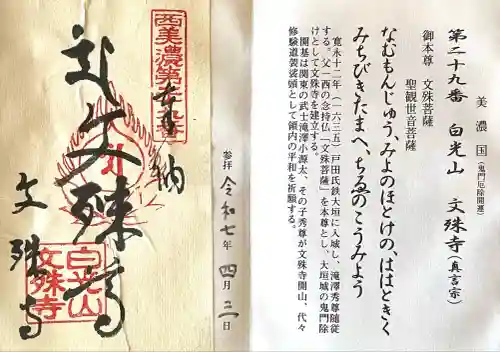 美濃国(鬼門厄除開運)
第二十九番 白光山 文殊寺(真言宗)
御本尊 文殊菩薩
聖観世音菩薩
なむもんじゅう、みよのほとけの、ははときく
みちびきたまへ、ちゑのこうみよう
寛永十二年(一六三五)戸田氏鉄大垣に入城し、滝澤秀尊随従
する。父一酉の念持仏「文殊菩薩」を本尊とし、大垣城の鬼門除
けとして文殊寺を建立する。
開基は関東の武士滝澤小源太、その子秀尊が文殊寺開山、代々
修験道袈裟頭として領内の平和を祈願する。
参拝 令和七年 四月 二日
西美濃第二十九番
奉納
文殊
文殊寺
白光山
文殊寺